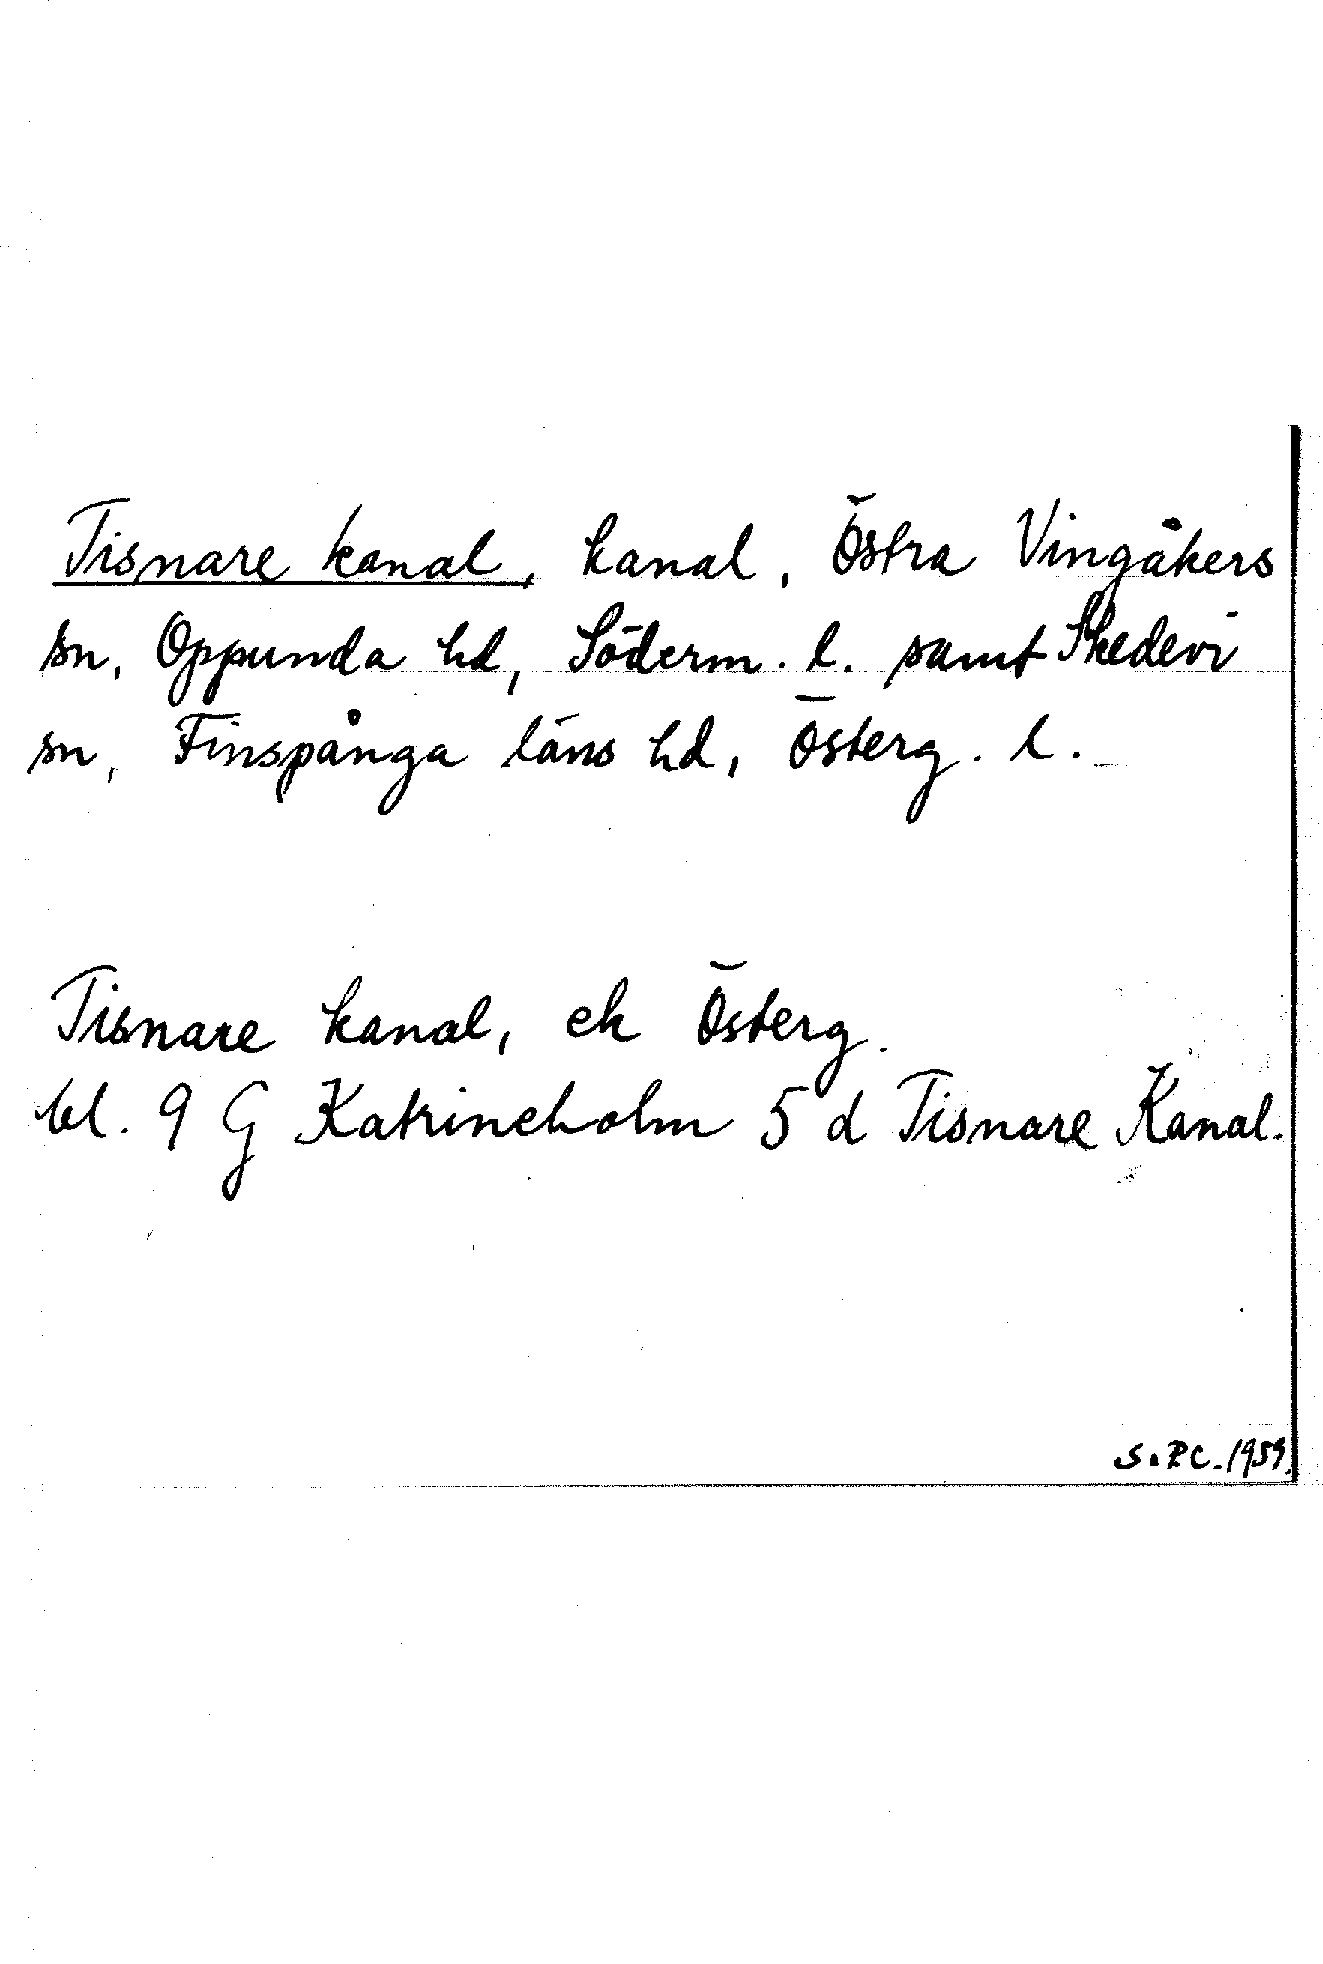 Tisnare kanal, kanal, Östra Vingåkers
sn, Oppunda hd, Söderm. l. samt Skedevi
sn, Finspånga läns hd, Österg. l.
Tisnare kanal, ek Österg.
bl. 9 G Katrineholm 5 d Tisnare Kanal.
S.P.C. 1959.